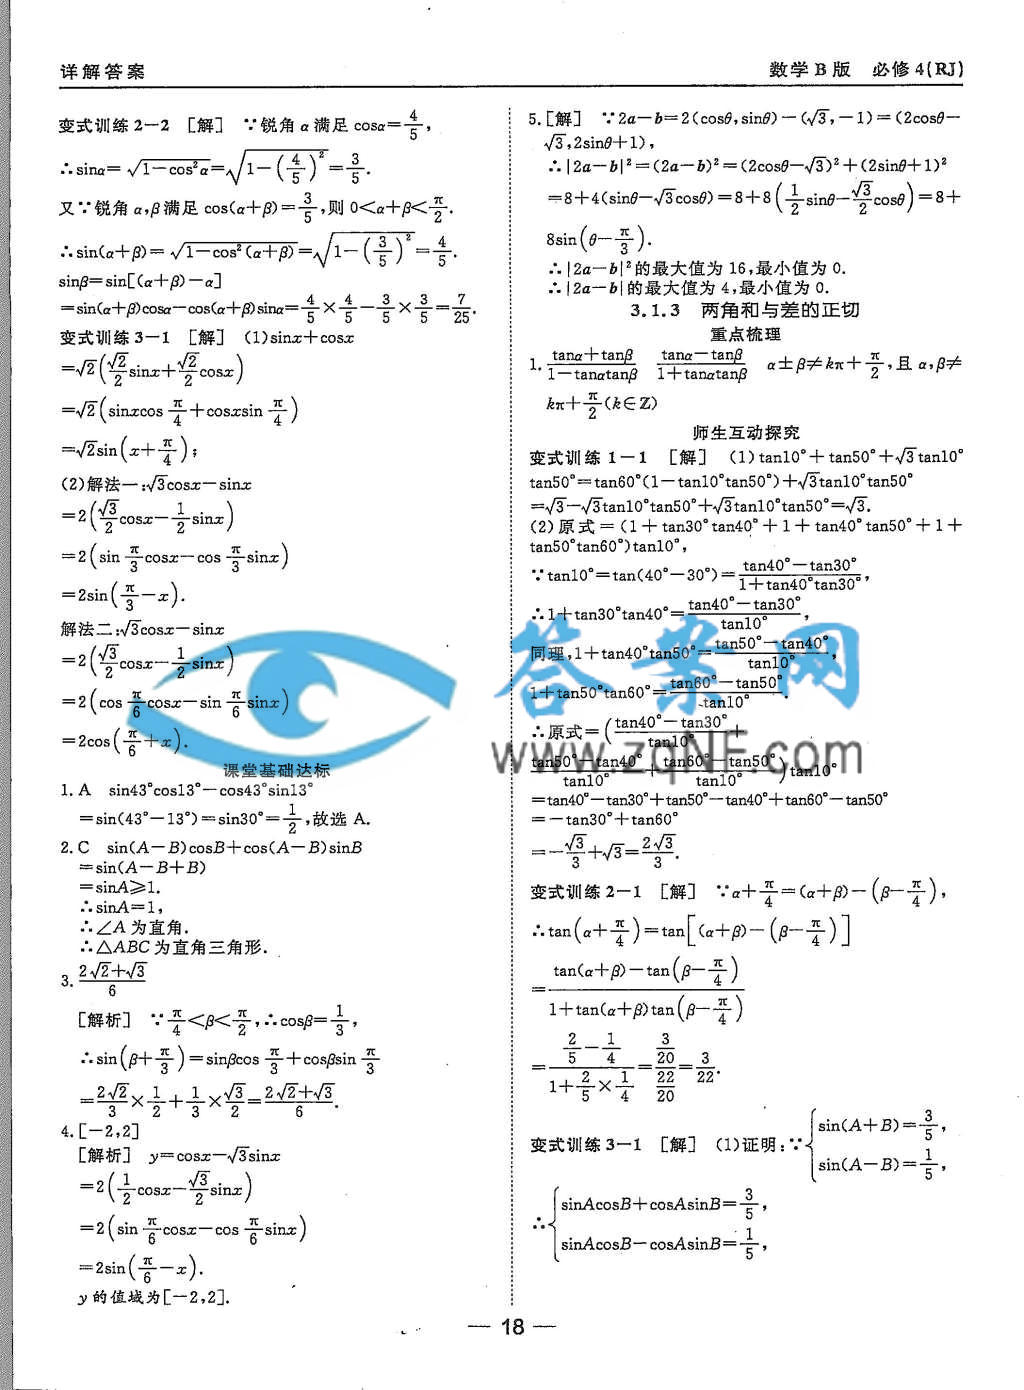 详解答案
数学B版 必修4(RJ)
变式训练2-2 [解] ∵锐角α满足cosα=4/5,
∴sinα=√(1-cos²α)=√(1-(4/5)²)=3/5.
又∵锐角α,β满足cos(α+β)=3/5,则0<α+β<π/2.
∴sin(α+β)=√(1-cos²(α+β))=√(1-(3/5)²)=4/5.
sinβ=sin[(α+β)-α]
=sin(α+β)cosα-cos(α+β)sinα=4/5×4/5-3/5×3/5=7/25.
变式训练3-1 [解] (1)sinx+cosx
=√2(√2/2sinx+√2/2cosx)
=√2(sinxcosπ/4+cosxsinπ/4)
=√2sin(x+π/4);
(2)解法一:√3cosx-sinx
=2(√3/2cosx-1/2sinx)
=2(sinπ/3cosx-cosπ/3sinx)
=2sin(π/3-x).
解法二:√3cosx-sinx
=2(√3/2cosx-1/2sinx)
=2(cosπ/6cosx-sinπ/6sinx)
=2cos(π/6+x).
课堂基础达标
1.A sin43°cos13°-cos43°sin13°
=sin(43°-13°)=sin30°=1/2,故选A.
2.C sin(A-B)cosB+cos(A-B)sinB
=sin(A-B+B)
=sinA≥1.
∴sinA=1,
∴∠A为直角.
∴△ABC为直角三角形.
3.(2√2+√3)/6
[解析] ∵π/4<β<π/2,∴cosβ=1/3,
∴sin(β+π/3)=sinβcosπ/3+cosβsinπ/3
=2√2/3×1/2+1/3×√3/2=(2√2+√3)/6.
4.[-2,2]
[解析] y=cosx-√3sinx
=2(1/2cosx-√3/2sinx)
=2(sinπ/6cosx-cosπ/6sinx)
=2sin(π/6-x).
y的值域为[-2,2].
5.[解] ∵2a-b=2(cosθ,sinθ)-(√3,-1)=(2cosθ-
√3,2sinθ+1),
∴|2a-b|²=(2a-b)²=(2cosθ-√3)²+(2sinθ+1)²
=8+4(sinθ-√3cosθ)=8+8(1/2sinθ-√3/2cosθ)=8+
8sin(θ-π/3).
∴|2a-b|²的最大值为16,最小值为0.
∴|2a-b|的最大值为4,最小值为0.
3.1.3 两角和与差的正切
重点梳理
1.(tanα+tanβ)/(1-tanαtanβ) (tanα-tanβ)/(1+tanαtanβ) α±β≠kπ+π/2,且α,β≠
kπ+π/2(k∈Z)
师生互动探究
变式训练1-1 [解] (1)tan10°+tan50°+√3tan10°
tan50°=tan60°(1-tan10°tan50°)+√3tan10°tan50°
=√3-√3tan10°tan50°+√3tan10°tan50°=√3.
(2)原式=(1+tan30°tan40°+1+tan40°tan50°+1+
tan50°tan60°)tan10°,
∵tan10°=tan(40°-30°)=(tan40°-tan30°)/(1+tan40°tan30°),
∴1+tan30°tan40°=(tan40°-tan30°)/tan10°,
同理,1+tan40°tan50°=(tan50°-tan40°)/tan10°,
1+tan50°tan60°=(tan60°-tan50°)/tan10°.
∴原式=((tan40°-tan30°)/tan10°+
(tan50°-tan40°)/tan10°+(tan60°-tan50°)/tan10°)tan10°
=tan40°-tan30°+tan50°-tan40°+tan60°-tan50°
=-tan30°+tan60°
=-√3/3+√3=2√3/3.
变式训练2-1 [解] ∵α+π/4=(α+β)-(β-π/4),
∴tan(α+π/4)=tan[(α+β)-(β-π/4)]
=(tan(α+β)-tan(β-π/4))/(1+tan(α+β)tan(β-π/4))
=(2/5-1/4)/(1+2/5×1/4)=(3/20)/(22/20)=3/22.
变式训练3-1 [解] (1)证明:∵{sin(A+B)=3/5,
sin(A-B)=1/5,
∴{sinAcosB+cosAsinB=3/5,
sinAcosB-cosAsinB=1/5,
答案网
www.zqNF.com
— 18 —